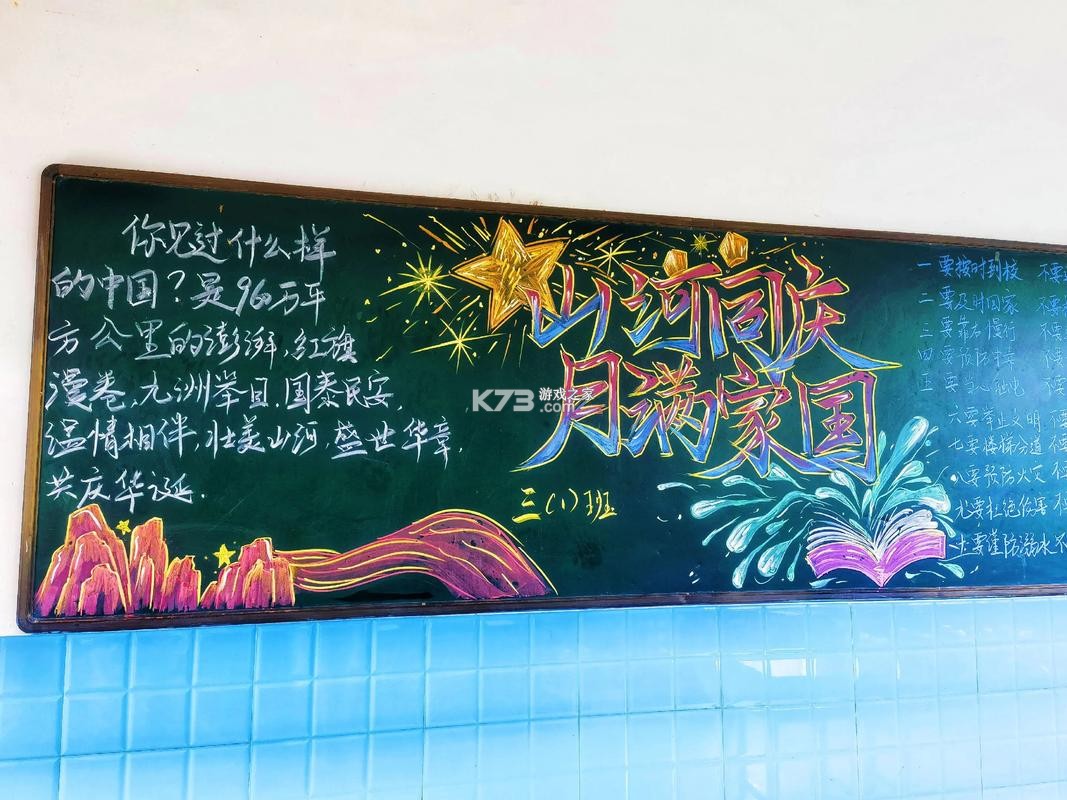 你见过什么样
的中国？是960万平
方公里的澎湃，红旗
漫卷，九洲举目，国泰民安，
温情相伴，壮美山河 盛世华章，
共庆华诞．
山河同庆
月满家国
三（1）班
K73 游戏之家
.com
一要按时到校 不要
二要及时回家 不要
三要靠右慢行 不要
四要预防 不要
五要当心触电 不要
六要举止文明 不要
七要楼梯分道 不要
八要预防火灾 不要
九要杜绝伤害 不
十要谨防溺水 不